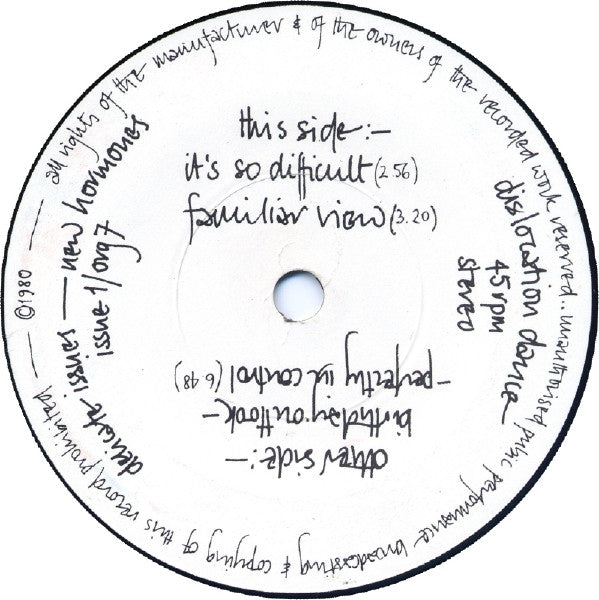 all rights of the manufacturer & of the owners of the recorded work reserved.. unauthorised public performance broadcasting & copying of this record prohibited — ©1980 —
this side:—
it's so difficult (2.56)
familiar view (3.20)
dislocation dance
45 rpm
stereo
other side:—
birthday outlook —
—perfectly in control (6.48)
delicate issues — new hormones
issue 1/org 7